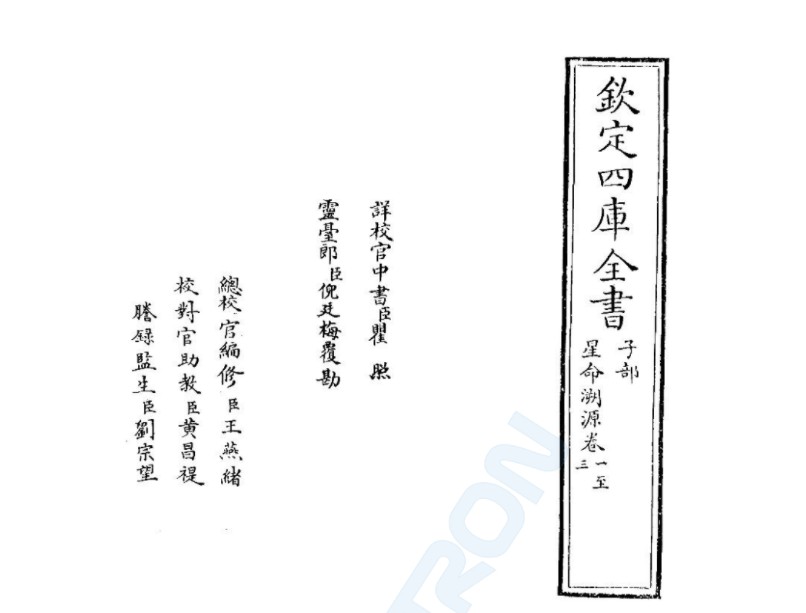 欽定四庫全書
子部
星命溯源卷一至三
詳校官中書臣瞿照
靈臺郎臣倪廷梅覆勘
總校官編修臣王燕緒
校對官助教臣黄昌禔
謄錄監生臣劉宗望
TRON